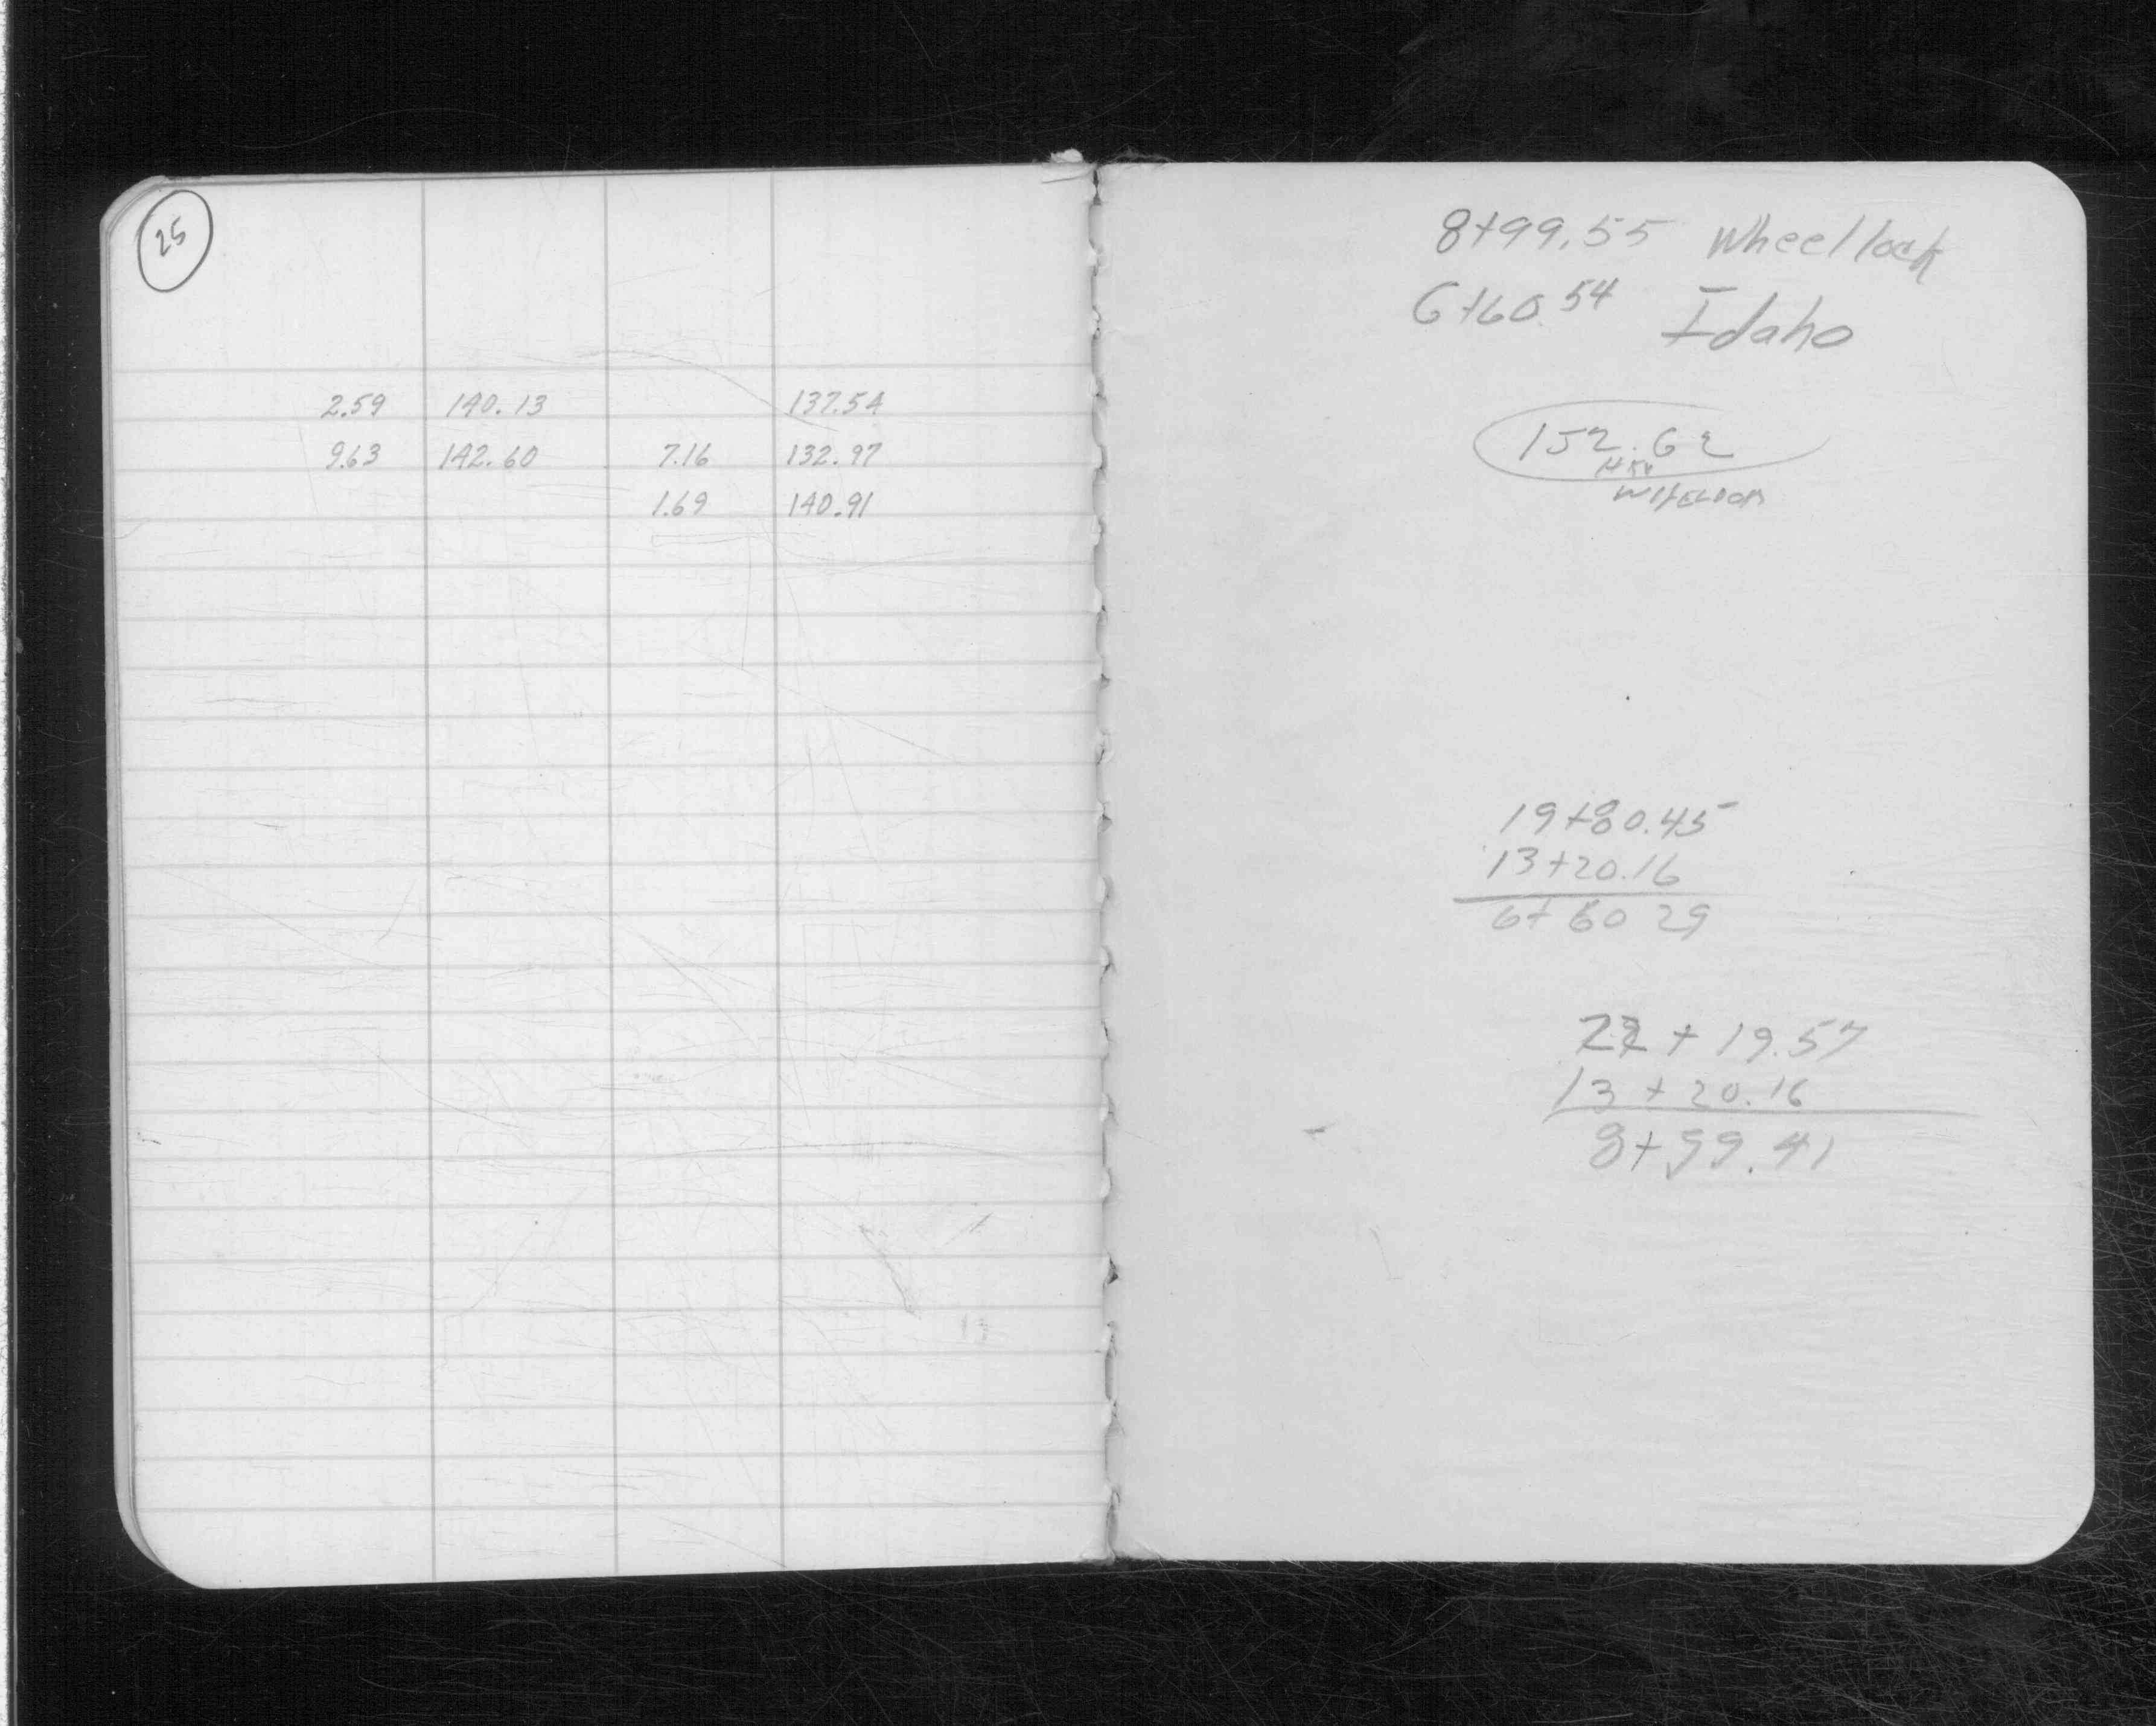 25
2.59 140.13 137.54
9.63 142.60 7.16 132.97
1.69 140.91
8+99.55 Wheellock
6+60.54 Idaho
152.62
19+80.45
13+20.16
6+60 29
22 + 19.57
13 + 20.16
8+99.41